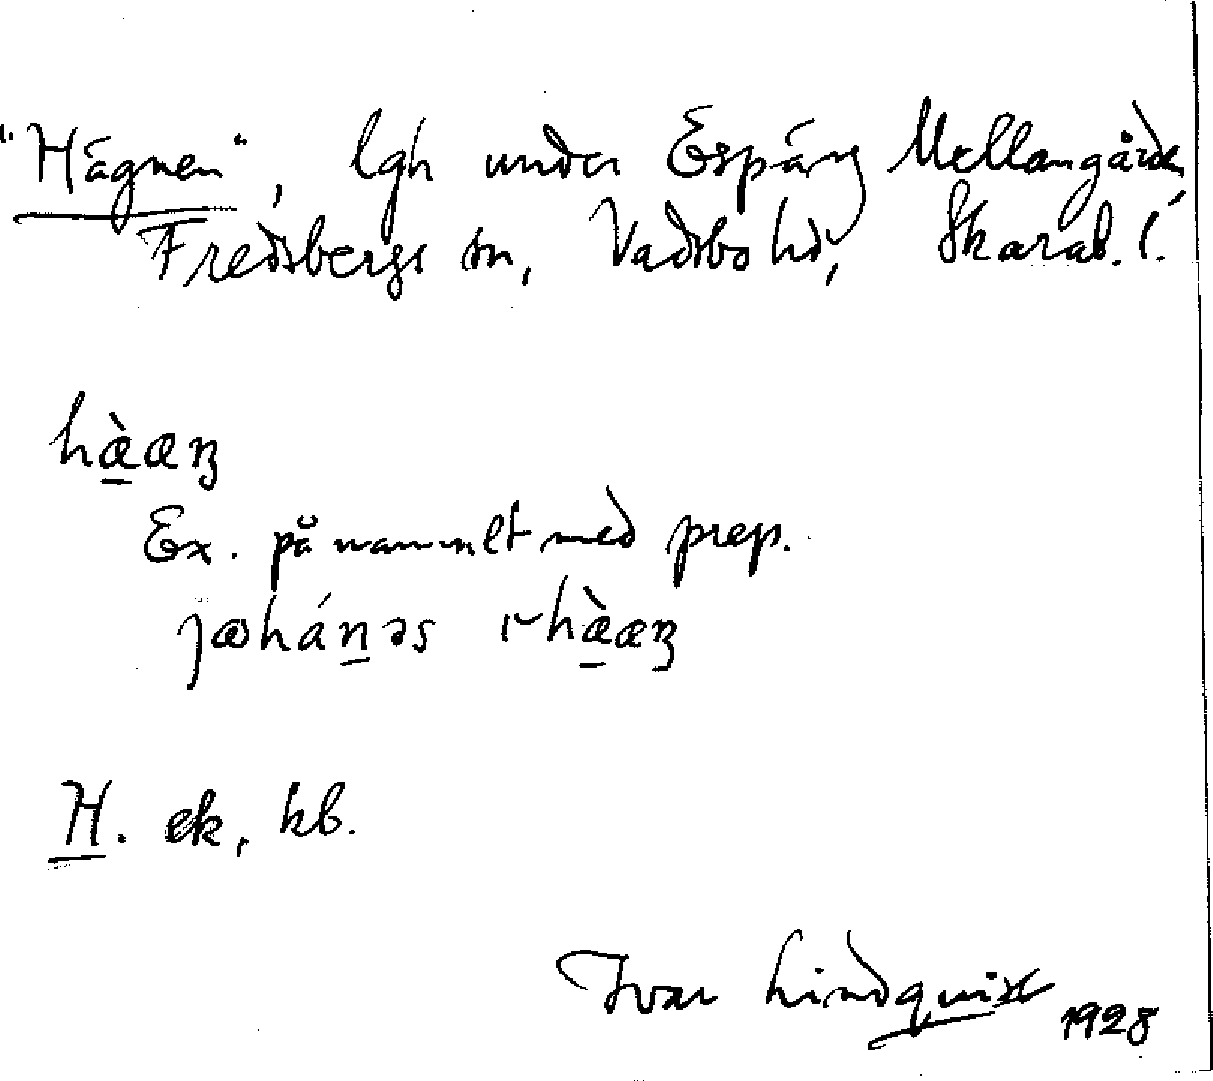 "Hägnen", lgh under Espäng Mellangården,
Fredsbergs sn, Vadsbo hd, Skarab. l.
hæ̀æn
Ex. på namnet med prep.
jɷhánəs ɩ hæ̀æn
H. ek, kb.
Ivar Lindquist 1928